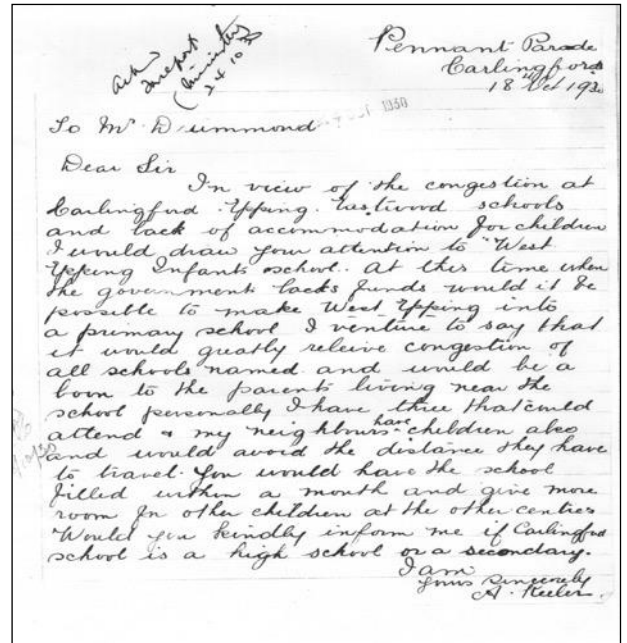 Ack
Report
(Minister)
24.10.30
Pennant Parade
Carlingford
18th Oct 1930
1930
To Mr. Drummond
Dear Sir
In view of the congestion at
Carlingford. Epping. Eastwood schools
and lack of accommodation for children
I would draw your attention to "West
Epping Infants school. At this time when
the government lacks funds would it be
possible to make West Epping into
a primary school I venture to say that
it would greatly releive congestion of
all schools named. and would be a
boon to the parents living near the
school personally I have three that could
attend & my neighbours have children also
and would avoid the distance they have
to travel. You would have the school
filled within a month and give more
room for other children at the other centres
Would you kindly inform me if Carlingford
school is a high school or a secondary.
I am
Yours Sincerely
A. Keeler.